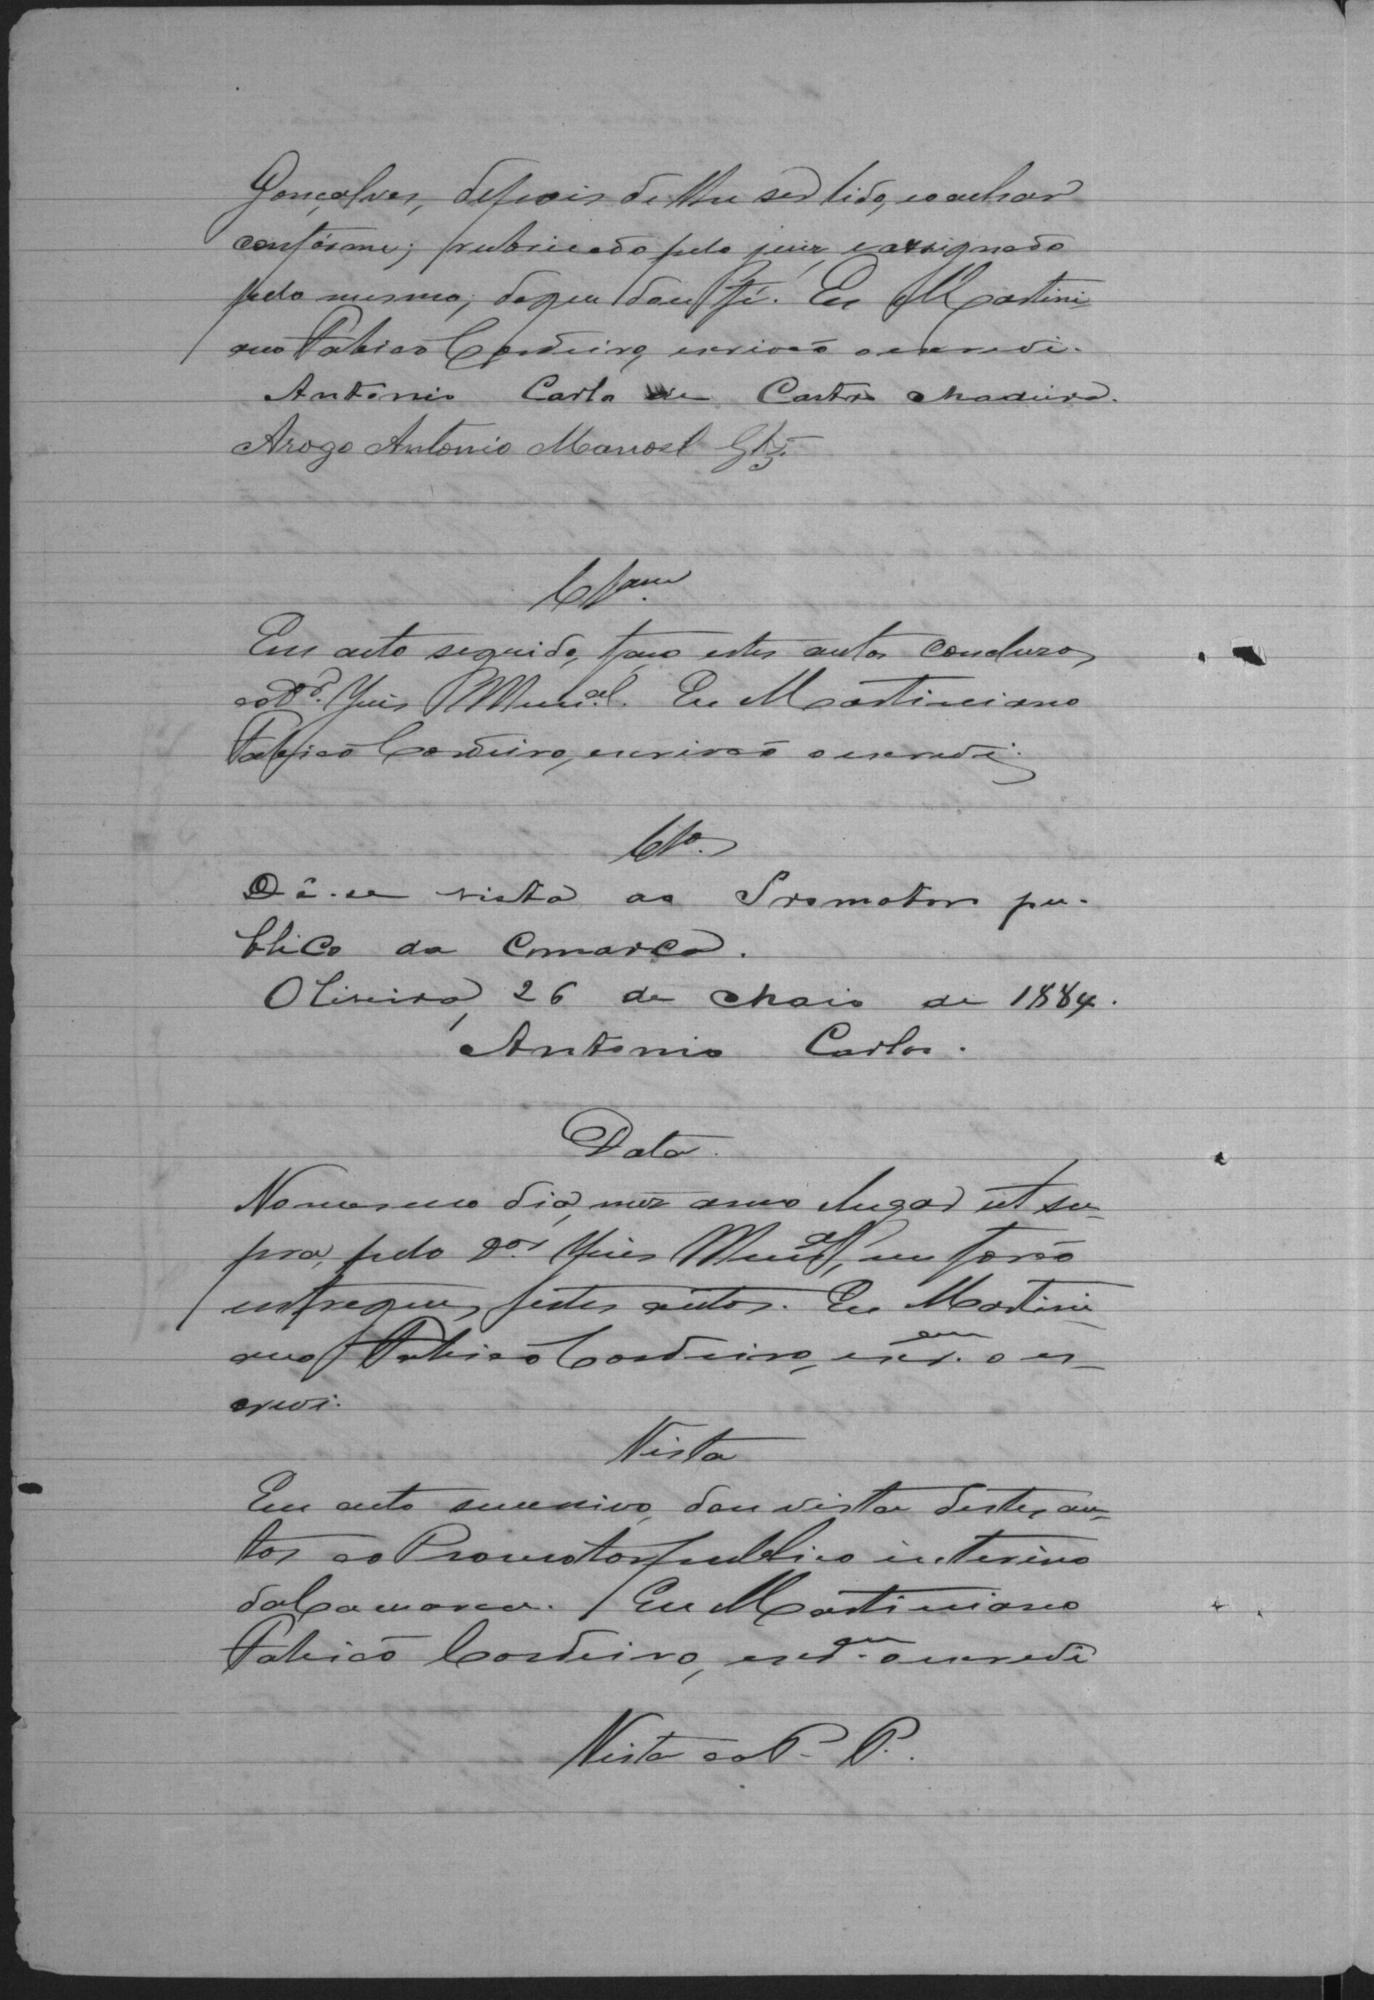 Gonçalves, depois de lhe ser lido, e o achar
confórme; rubricado pelo juiz, e assignado
pelo mesmo; do que dou fé. Eu Martini
ano Fabião Cordeiro, escrivão o escrevi.
Antonio Carlo de Castro Madeira.
Arogo Antonio Manoel Glz.
Clsam.
Em acto seguido, faço estes autos concluzos,
ao Dr. Juis Mun.al. Eu Martiniano
Fabião Cordeiro, escrivão o escrevi.
Clo.
Dê-se vista ao Promotor pu-
blico da Comarca.
Oliveira, 26 de Maio de 1884.
Antonio Carlos.
Data.
No mesmo dia, mez anno e lugar ut su-
pra, pelo Dor. Juis Mun.al, me forão
entregues, estes autos. Eu Martini
ano Fabião Cordeiro, escr.am o es-
crevi.
Vista
Em acto sucessivo, dou vista destes au-
tos ao Promotor publico interino
da Comarca. Eu Martiniano
Fabião Cordeiro, escr.am o escrevi
Vista ao P. P.